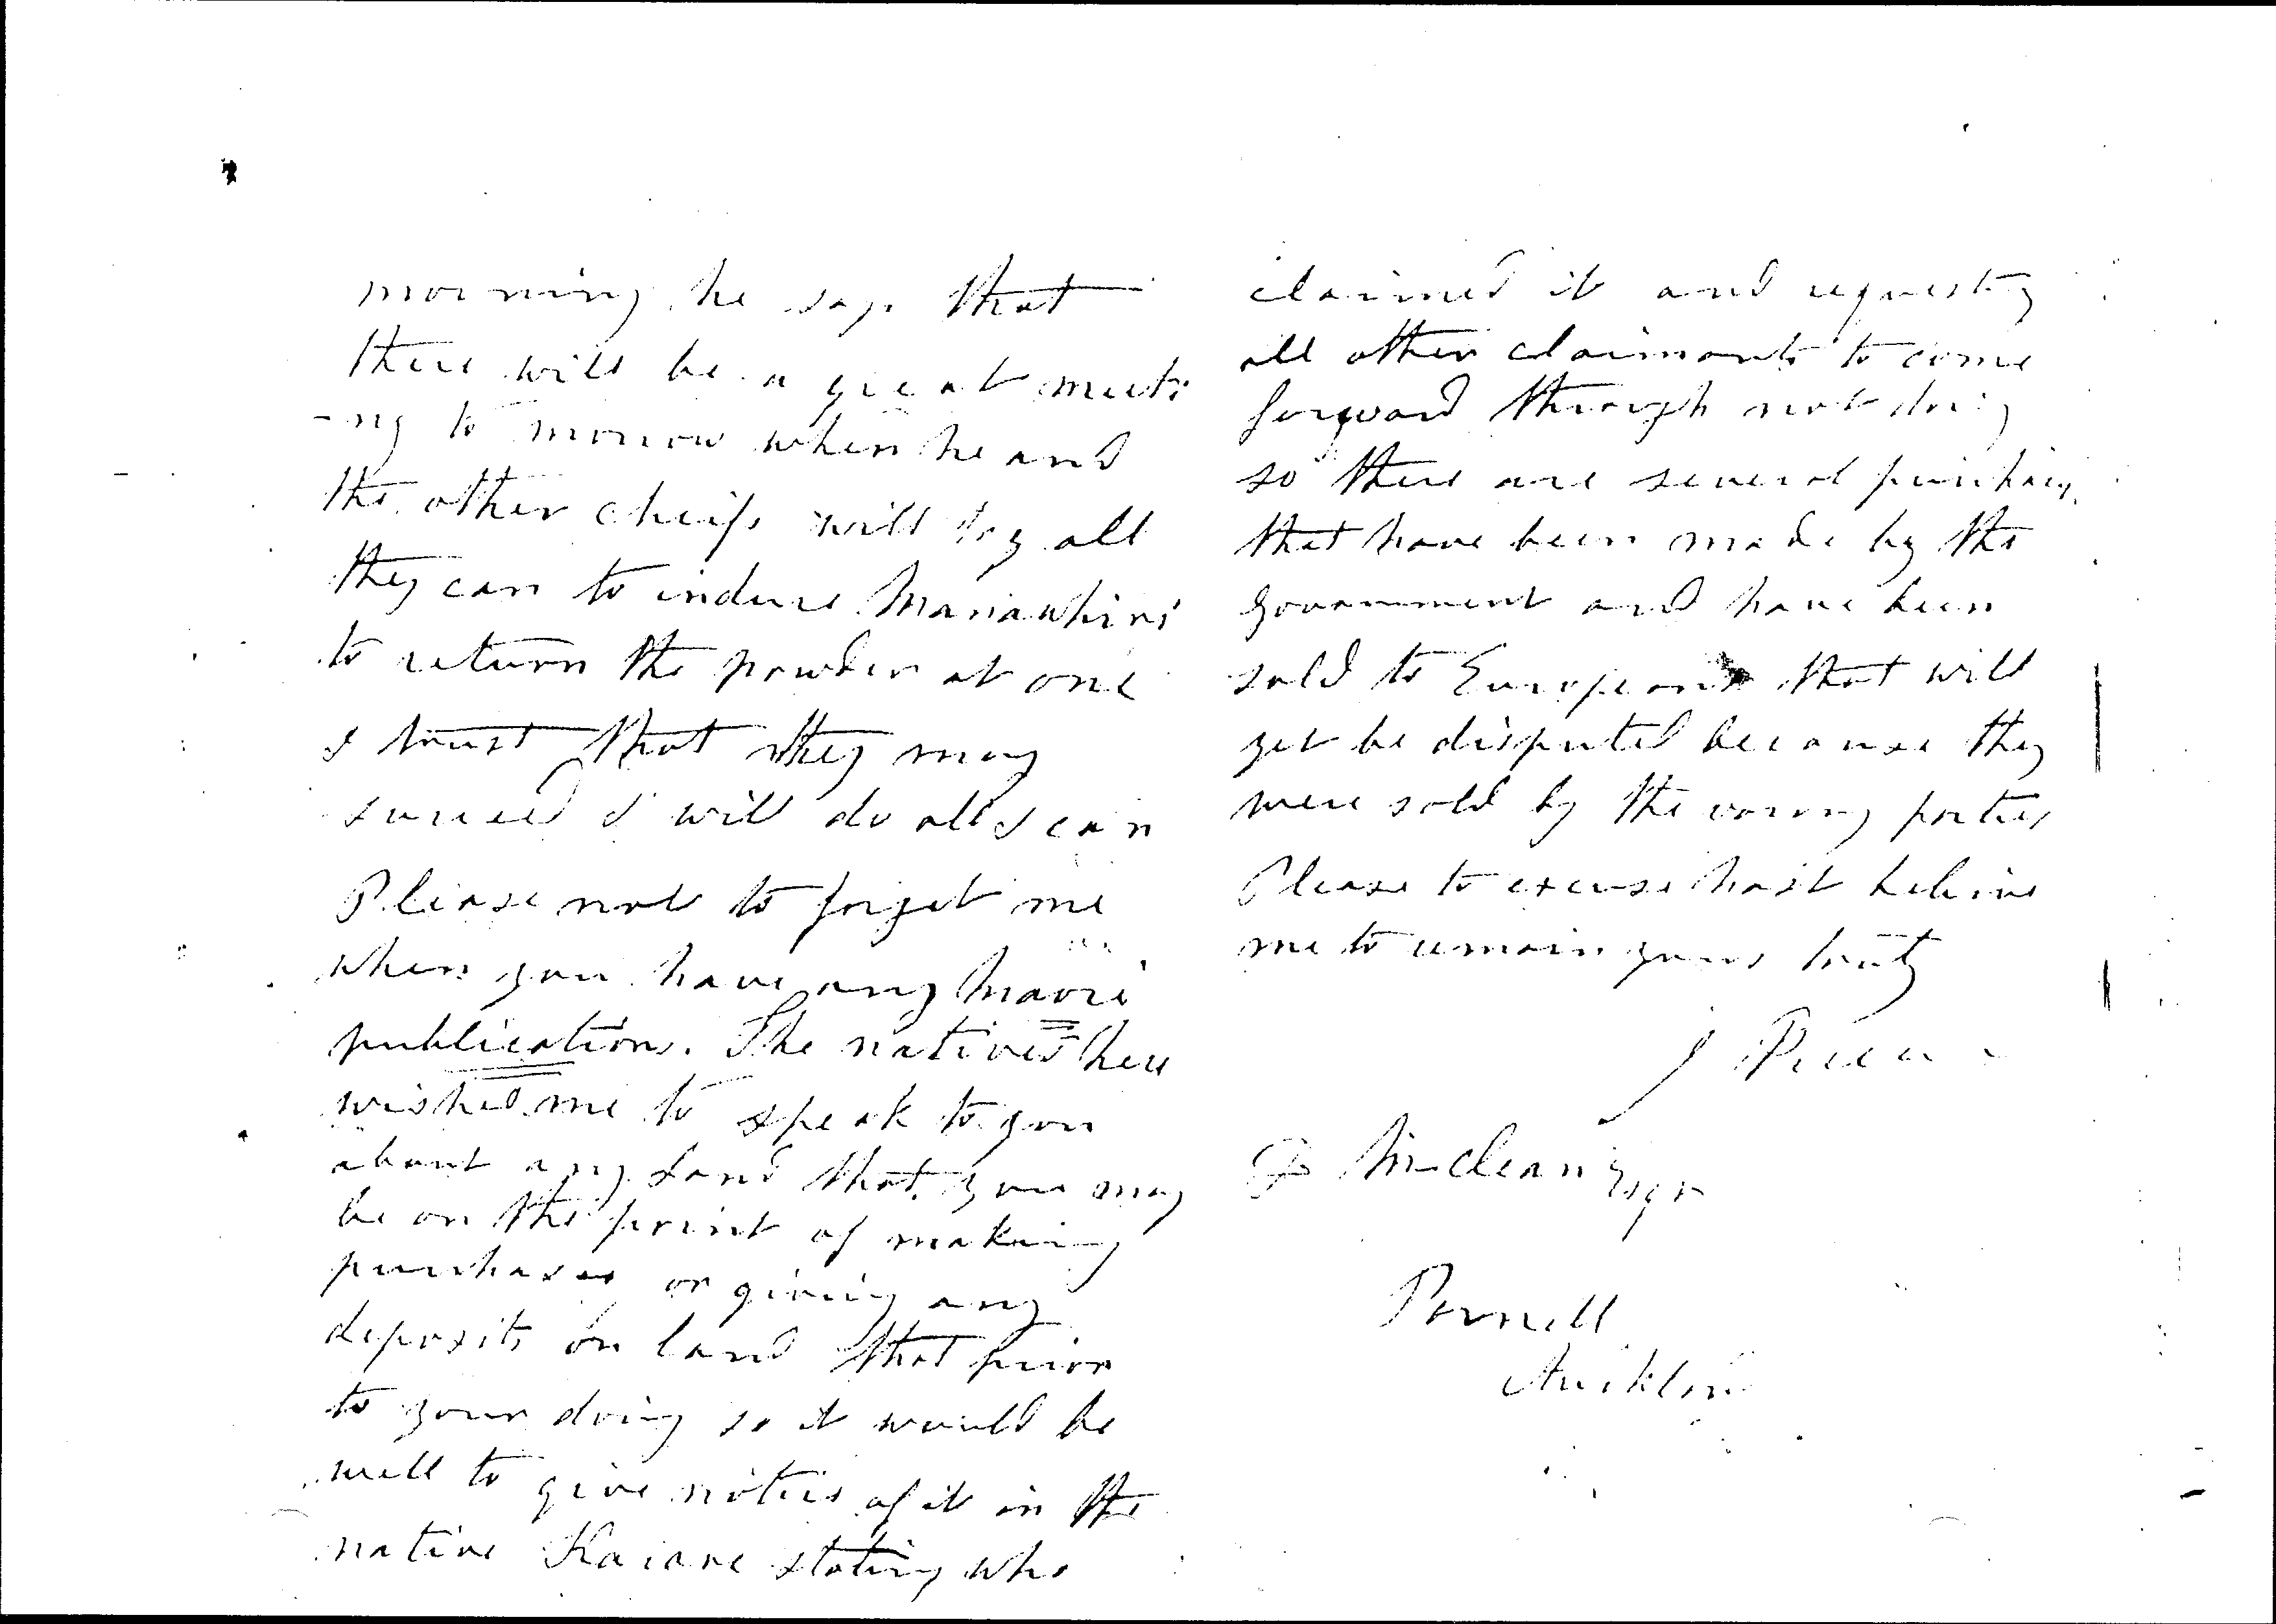 morning he says that
there will be a great meeti
-ng to morrow when he and
the other cheifs will try all
they can to induce Manawhiri
to return the powder at one
I trust that they may
succeed I will do all I can
Please not to forget me
when you have any maori
publications. The natives here
wished me to speak to you
about any land that you may
be on the point of making
purchases or giving any
deposits on land that prior
to your doing so it would be
well to give notice of it in the
native Karare stating who
claimed it and requesting
all other claimants to come
forward through not doing
so there are several purchases
that have been made by the
government and have been
sold to Europeans that will
yet be disputed because they
were sold by the wrong parties
Please to excuse hast believe
me to remain yours truly
J
McClean Esqr
Parnell
Auckland